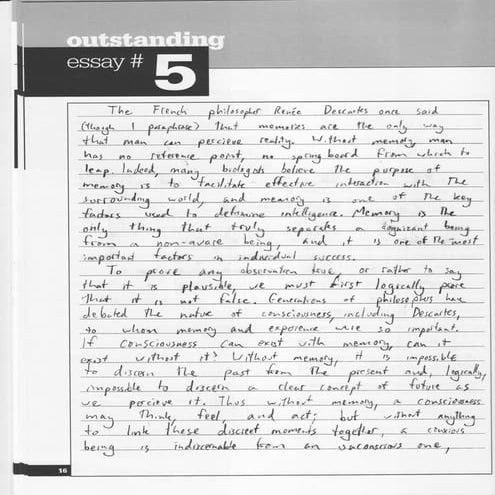 outstanding
essay # 5
The French philosopher Renée Descartes once said
(though I paraphrase) that memories are the only way
that man can percieve reality. Without memory, man
has no reference point, no springboard from which to
leap. Indeed, many biologists believe the purpose of
memory is to facilitate effective interaction with the
surrounding world, and memory is one of the key
factors used to determine intelligence. Memory is the
only thing that truly separates a cognizant being
from a non-aware being, and it is one of the most
important factors in individual success.
To prove any observation true, or rather to say
that it is plausible, we must first logically prove
that it is not false. Generations of philosophers have
debated the nature of consciousness, including Descartes,
to whom memory and experience were so important.
If consciousness can exist with memory, can it
exist without it? Without memory, it is impossible
to discern the past from the present and, logically,
impossible to discern a clear concept of future as
we percieve it. Thus without memory, a consciousness
may think, feel, and act; but without anything
to link these discreet moments together, a conscious
being is indiscernable from an unconscious one,
16